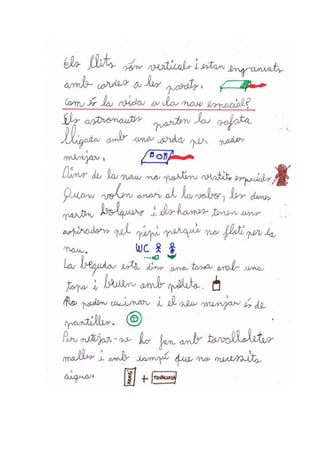 Els llits són verticals i estan enganxats
amb cordes a les parets.
Com és la vida a la nau espacial?
Els astronautes porten la safata
lligada amb una corda per poder
menjar.
Dins de la nau no porten vestits especials
Quan volen anar al lavabo, les dones
porten bolquers i els homes tenen uns
aspiradors pel pipí perquè no floti per la
nau. WC
La beguda està dins una tassa amb una
tapa i beuen amb palleta.
No poden cuinar i el seu menjar és de
pastilles.
Per netejar-se ho fan amb tovalloletes
molles i amb xampú que no necessita
aigua. +